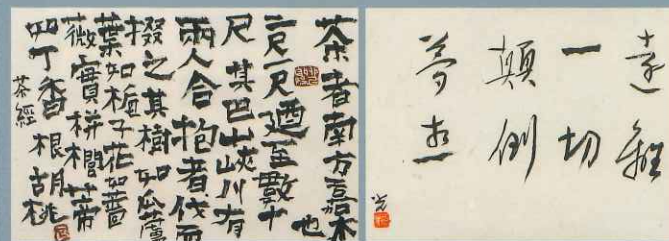 茶者南方嘉木
也
一尺二尺廼至數十
尺其巴山峽川有
兩人合抱者伐而
掇之其樹如瓜蘆
葉如梔子花如薔
薇實栟櫚蒂
如丁香根胡桃
茶經
遠離
一切
顛倒
夢想